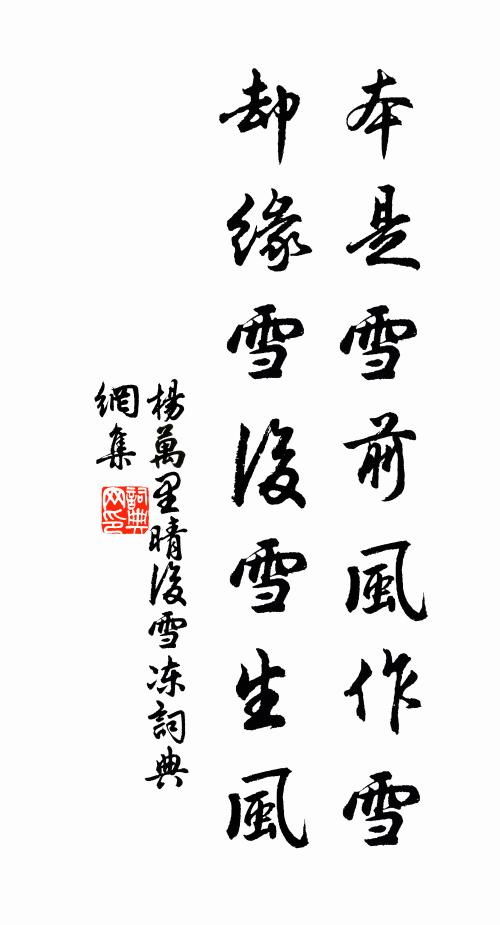 本是雪前風作雪
却緣雪後雪生風
楊萬里晴後雪冻詞典
網集
詞典
网印